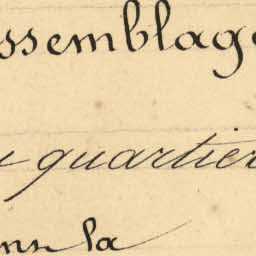 ssemblag
quartier
ns la